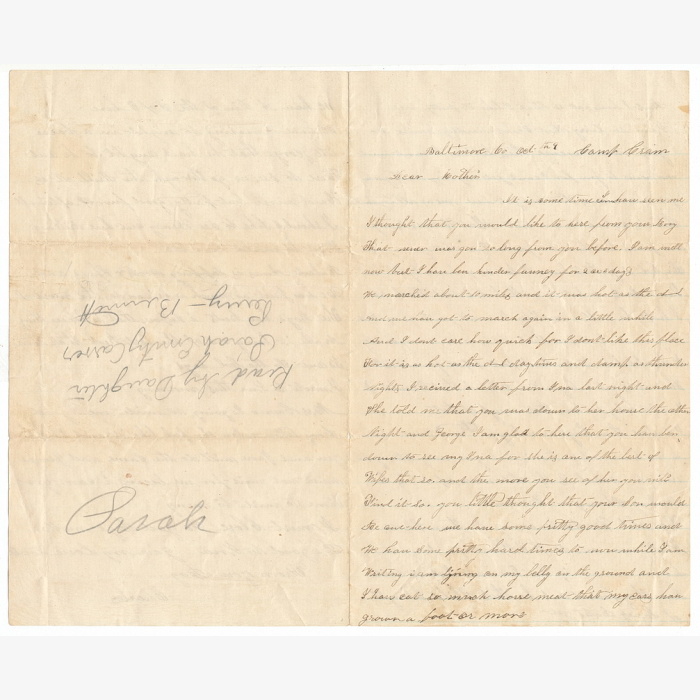 Baltimore Co Oct 29 Camp
Dear Mother
It is some time you have seen me
I thought that you would like to here from your Boy
That never was so long from you before. I am well
now but I have ben kinder funney for days
We marched about 10 miles and it was hot as the
and we have got to march again in a little while
And I dont care how quick for I dont like this place
For it is as hot as the daytimes and damp as thunder
Nights I recived a letter from Ina last night and
She told me that you was down to her house the other
Night and George I am glad to here that you have ben
down to see my Ina for she is one of the best of
Wifes that so. and the more you see of her you will
Find it so. you little thought that your Son would
Be out here we have some pritty good times and
We have some pritty hard times to now while I am
Writing I am lying on my belly on the ground and
I have eat so much horse meat that my ears have
grown a foot or more
Read by Daughter
Sarah Emily
Perry - Bennett
Sarah